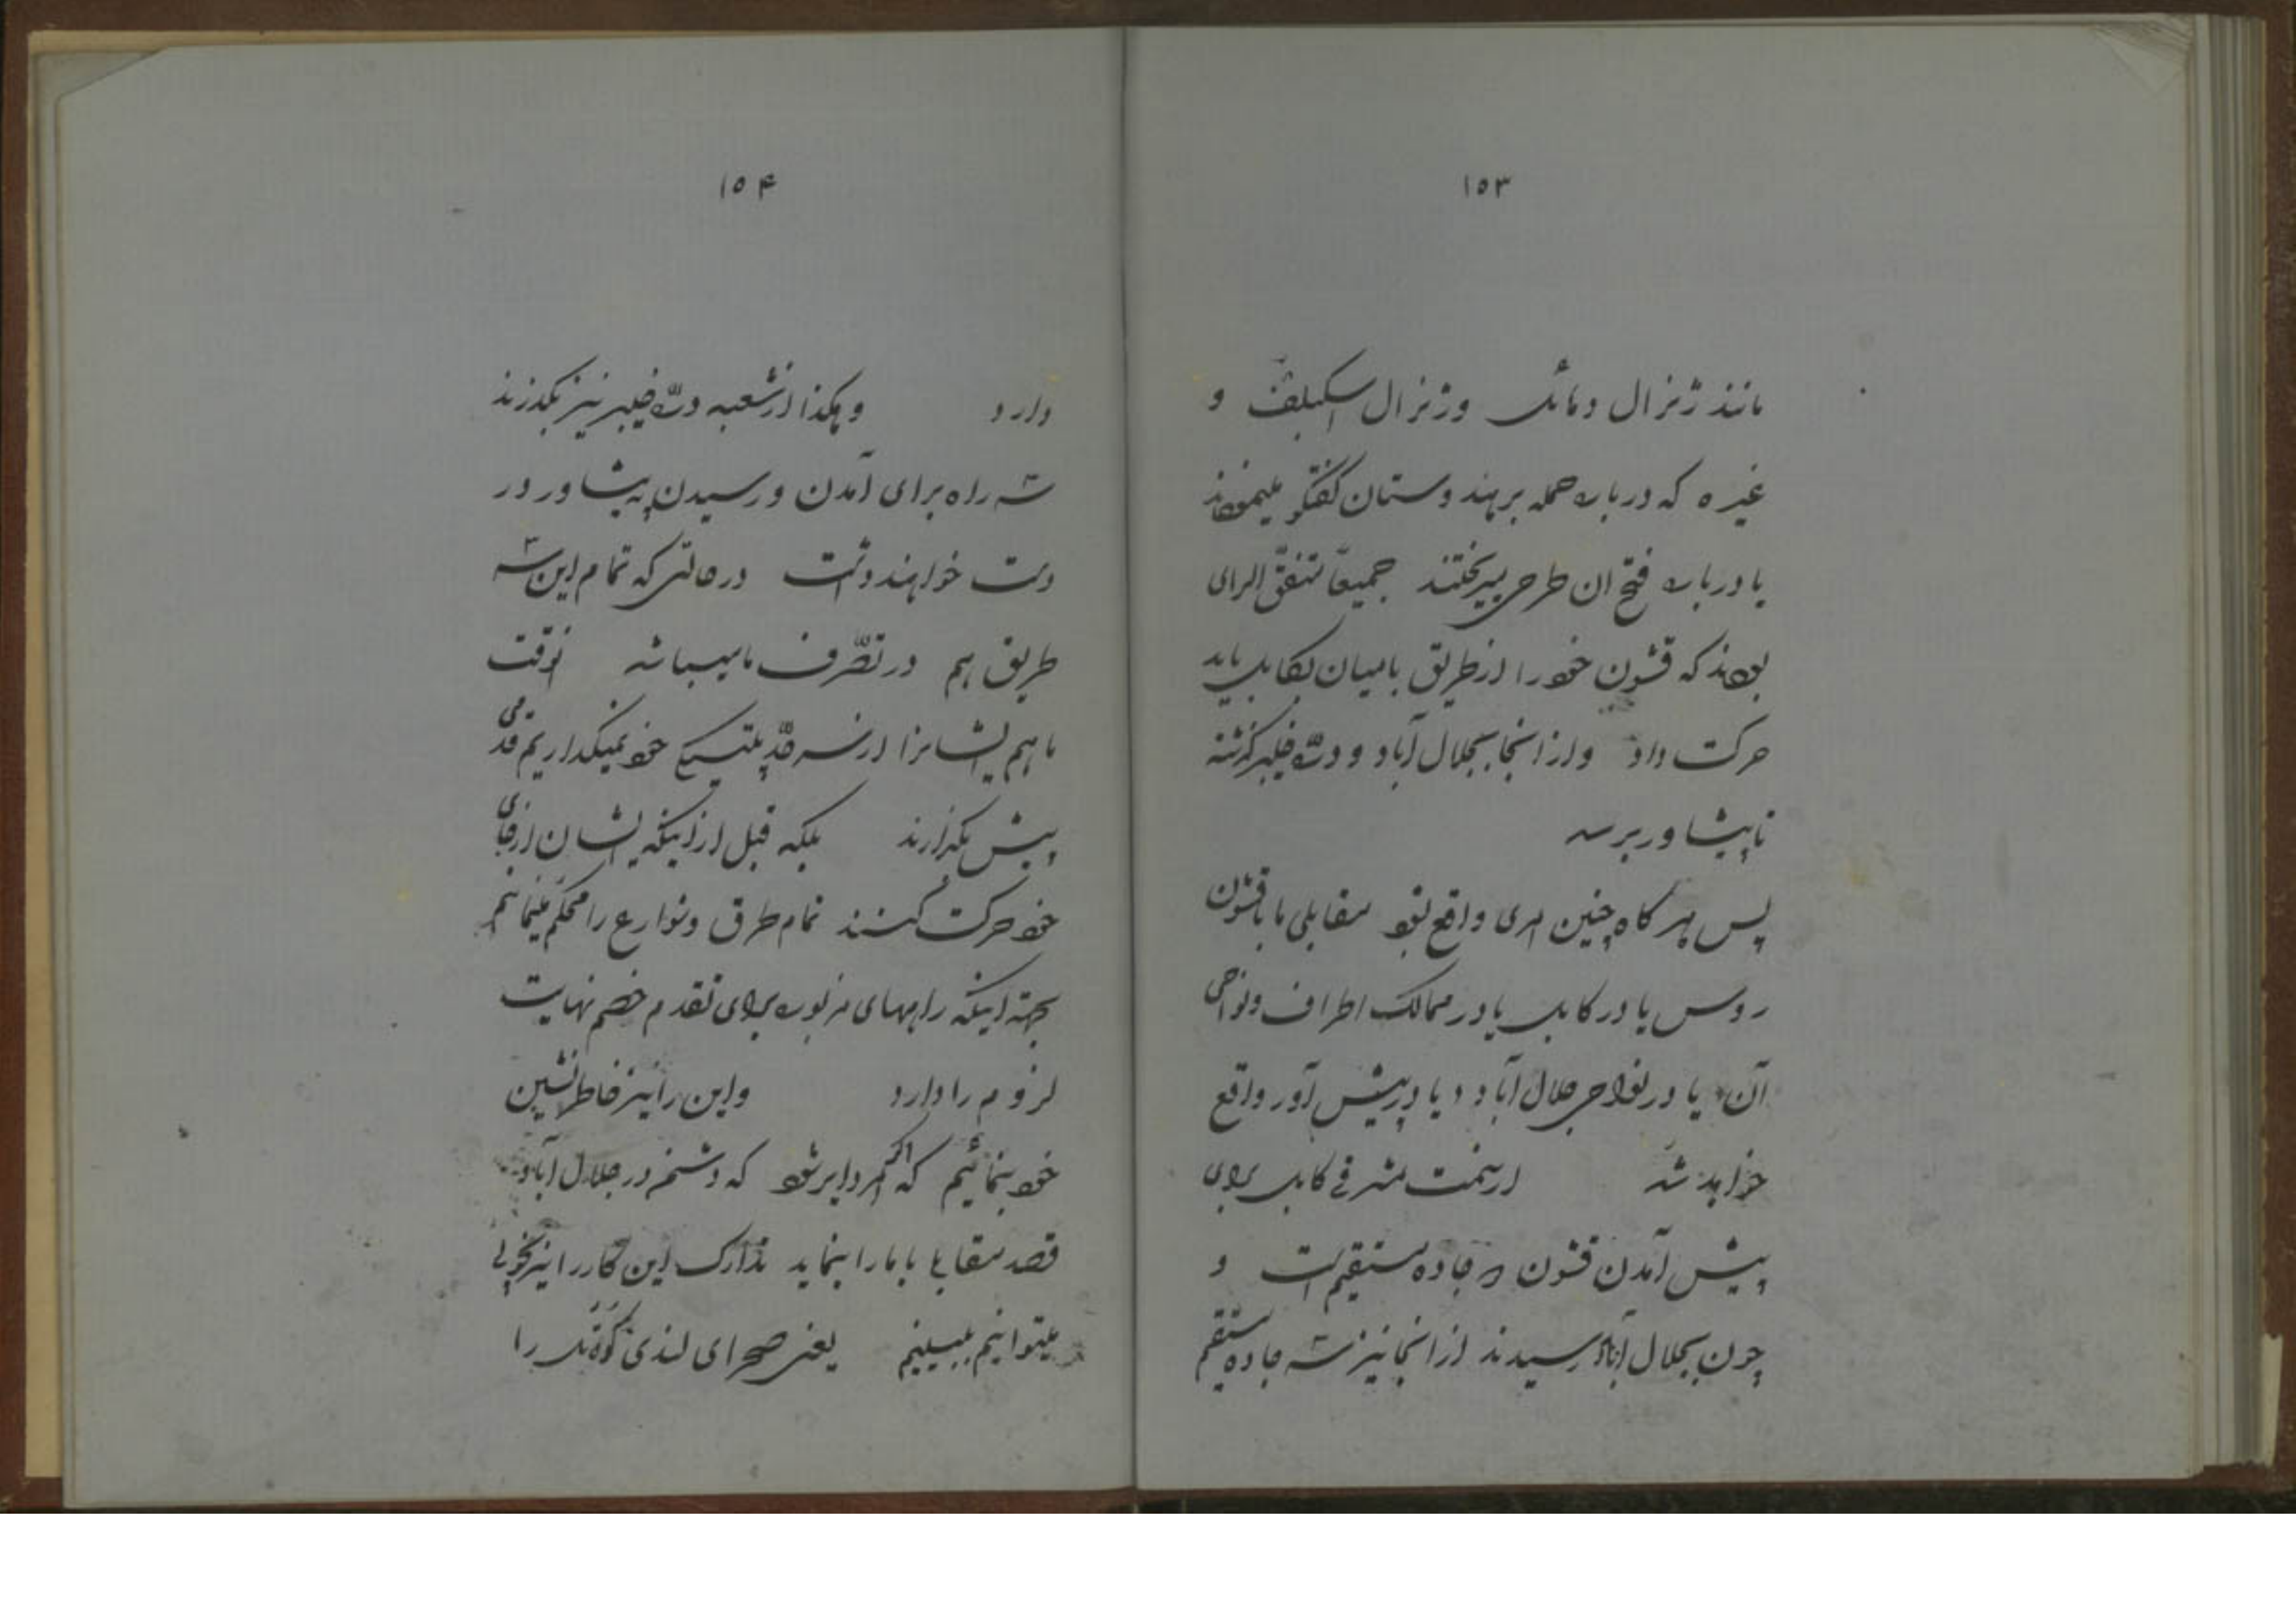 ۱۵۳
مانند ژنرال دمانک و ژنرال اسکبلف و
غیره که درباره حمله بر هندوستان گفتگو مینمودند
یا درباره فتح ان طرح میریختند جمیعاً متفق الرای
بودند که قشون خود را از طریق بامیان بکابل باید
حرکت داد و از انجا بجلال آباد و درّه خیبر گذشته
تا پیشاور برسد
پس هر گاه چنین امری واقع شود مقابلی ما با قشون
روس یا در کابل یا در ممالک اطراف و نواحی
آن یا در نواحی جلال آباد یا در پیش آور واقع
خواهد شد از سمت مشرقی کابل برای
پیش آمدن قشون جاده مستقیم است و
چون بجلال آباد رسیدند از انجا نیز سه جاده مستقیم
۱۵۴
دارد و هکذا از شعبه درّه خیبر نیز بگذرند
سه راه برای آمدن و رسیدن به پیشاور در
دست خواهند داشت در حالتی که تمام این سه
طریق هم در تصرّف ما میباشد انوقت
ما هم ایشانرا از سرحدّ پلتیکی خود نمیگذاریم قدمی
پیش بگذارند بلکه قبل از اینکه ایشان از جای
خود حرکت کنند تمام طرق و شوارع را محکم مینمائیم
بجهة اینکه راههای مزبوره برای تقدم خصم نهایت
لزوم را دارد و این را نیز خاطر نشین
خود بنمائیم که اگر امر دایر شود که دشمن در جلال آباد
قصد مقابلۀ با ما را بنماید تدارک این کار را نیز بخوبی
میتوانیم ببینیم یعنی صحرای لندی کوتک را